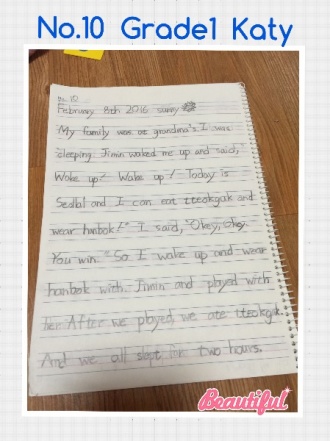 No.10 Grade1 Katy
no. 10
February 8th 2016 sunny
My family was at grandma's. I was
sleeping. Jimin waked me up and said,
Wake up! Wake up! Today is
Seollal and I can eat tteokguk and
wear hanbok!" I said, "Okey, okey.
You win." So I wake up and wear
hanbok with Jimin and played with
her. After we played, we ate tteokguk.
And we all slept for two hours.
Beautiful